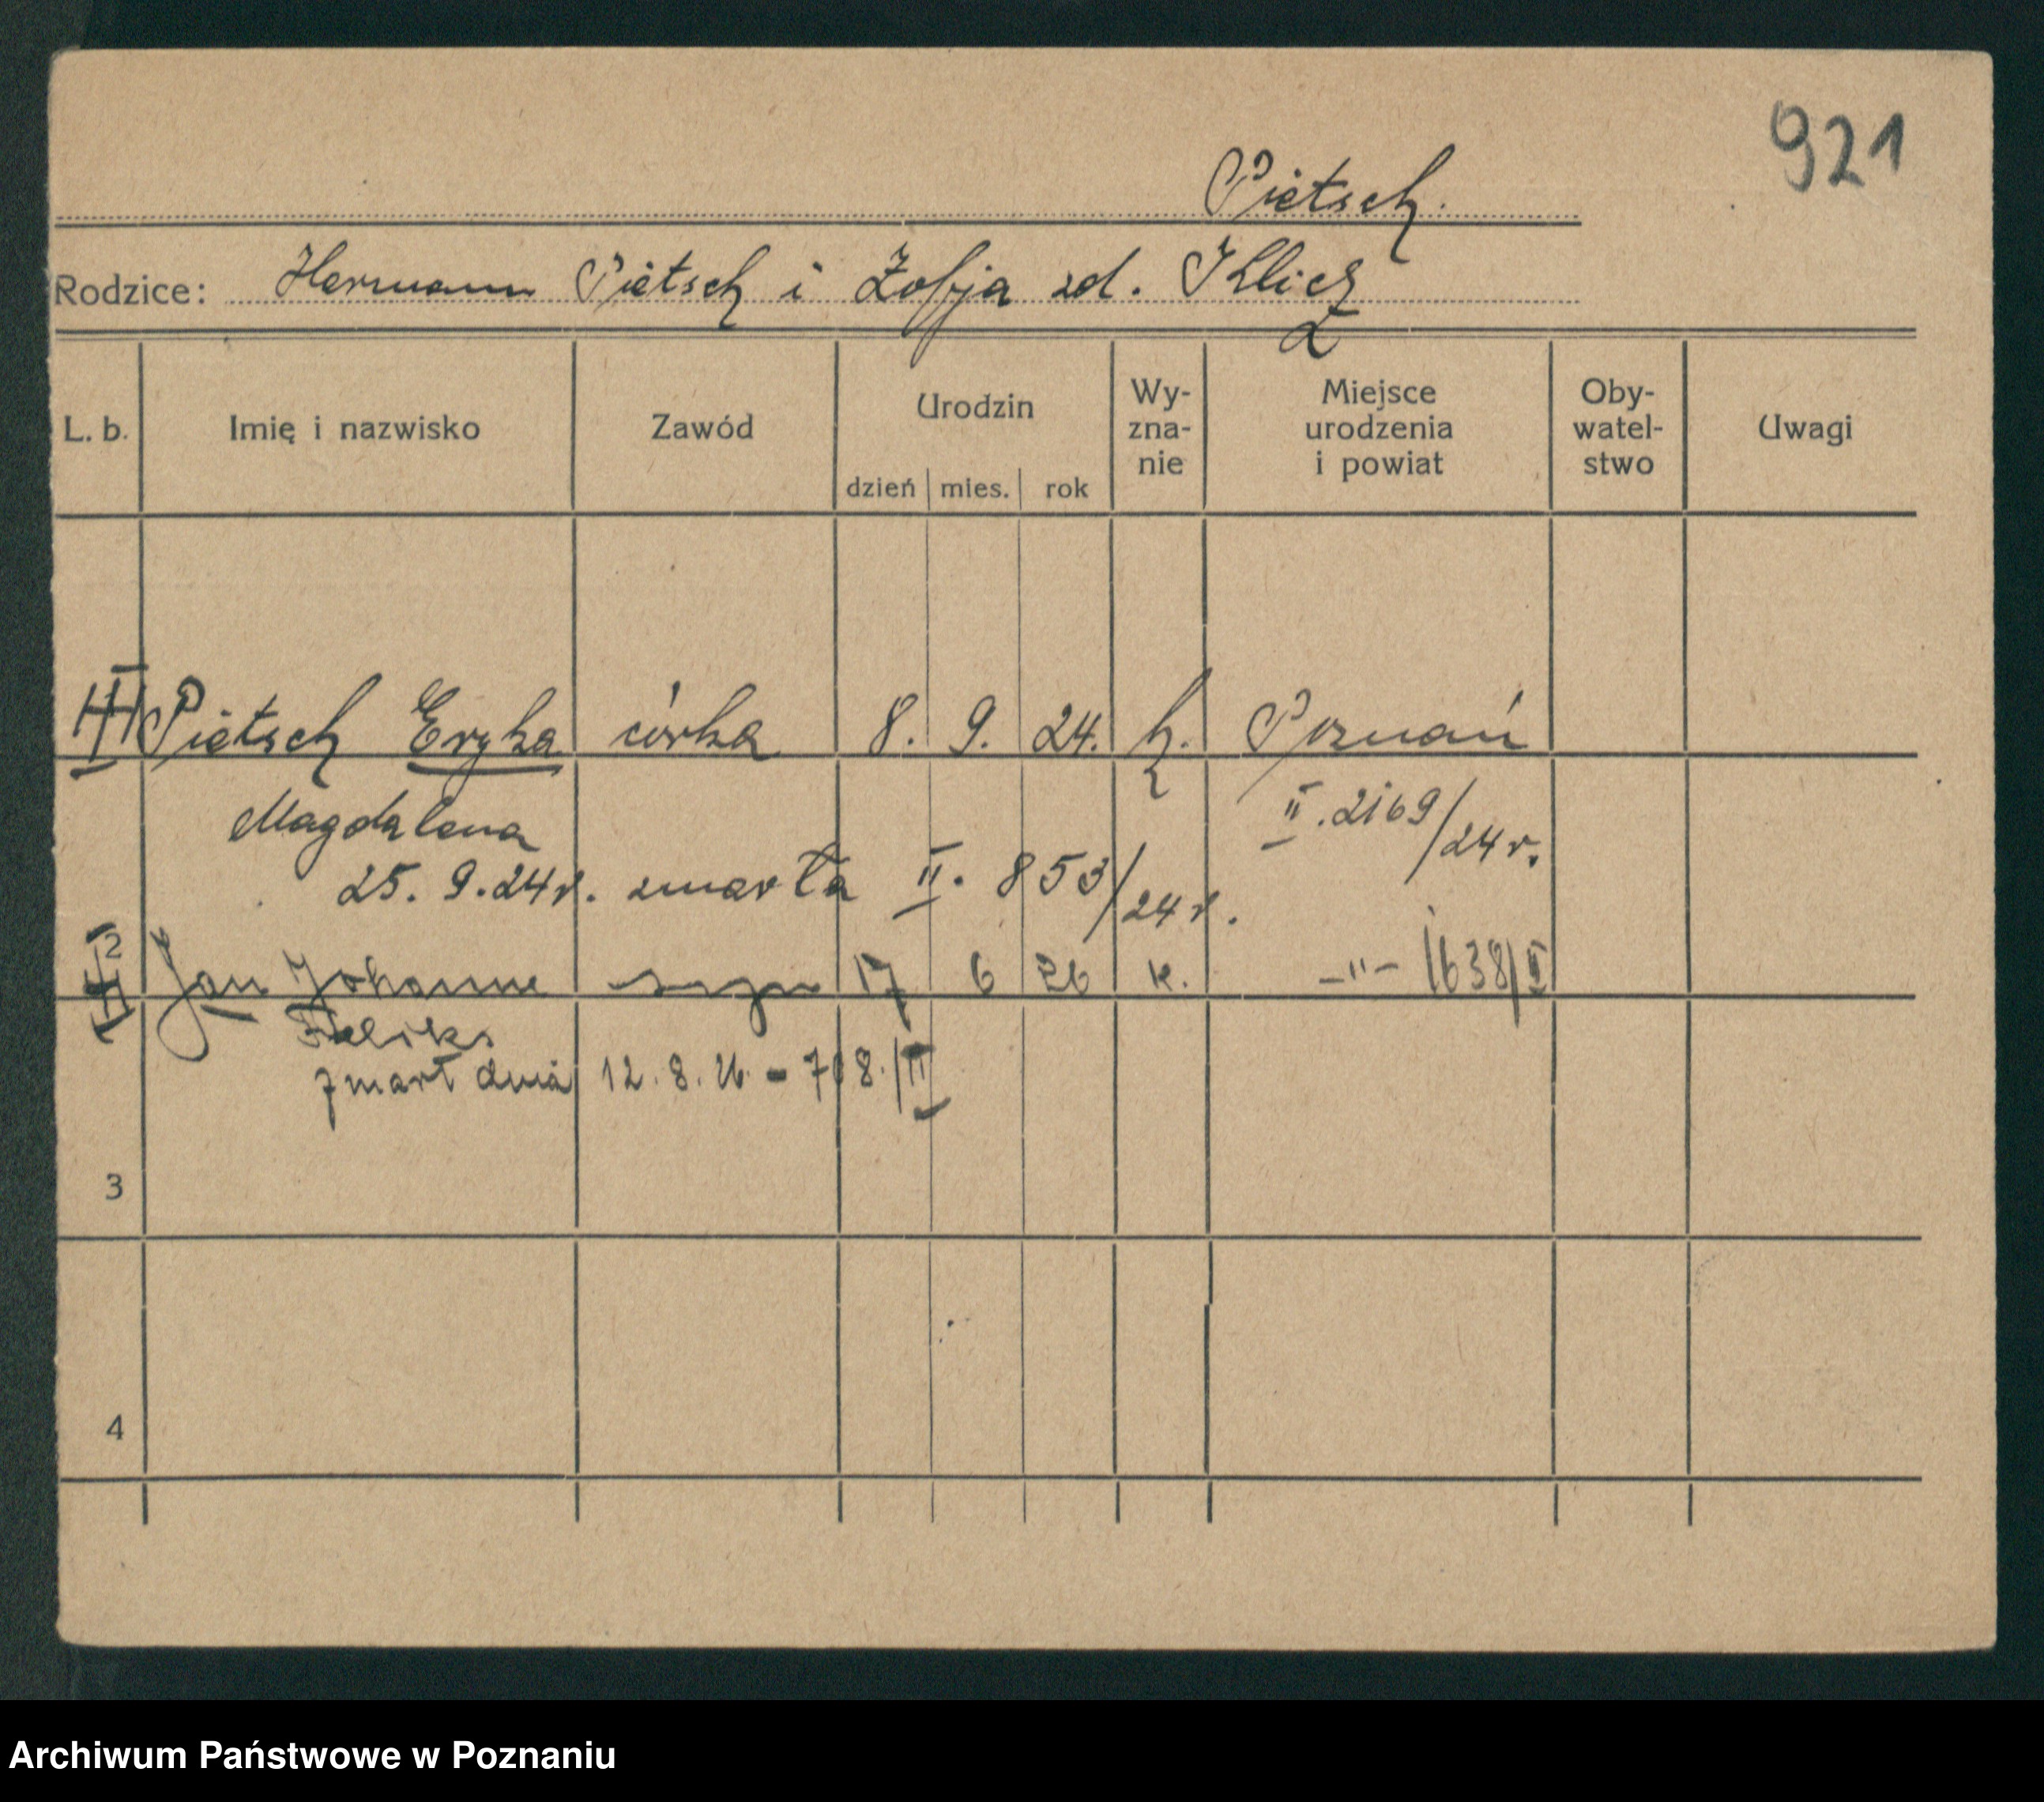 921
Pietsch.
Rodzice: Hermann Pietsch i Zofja zd. Klicz
L. b. Imię i nazwisko Zawód Urodzin dzień mies. rok Wy-zna-nie Miejsce urodzenia i powiat Oby-watel-stwo Uwagi
Pietsch Eryka córka 8. 9. 24. k. Poznań
Magdalena II. 2169/24 r.
25. 9. 24 r. zmarła II. 853/24 r.
2 Jan Johanne syn 17 6 26 k. -"- 1638/II
Feliks
zmarł dnia 12. 8. 26. - 708./II
3
4
Archiwum Państwowe w Poznaniu